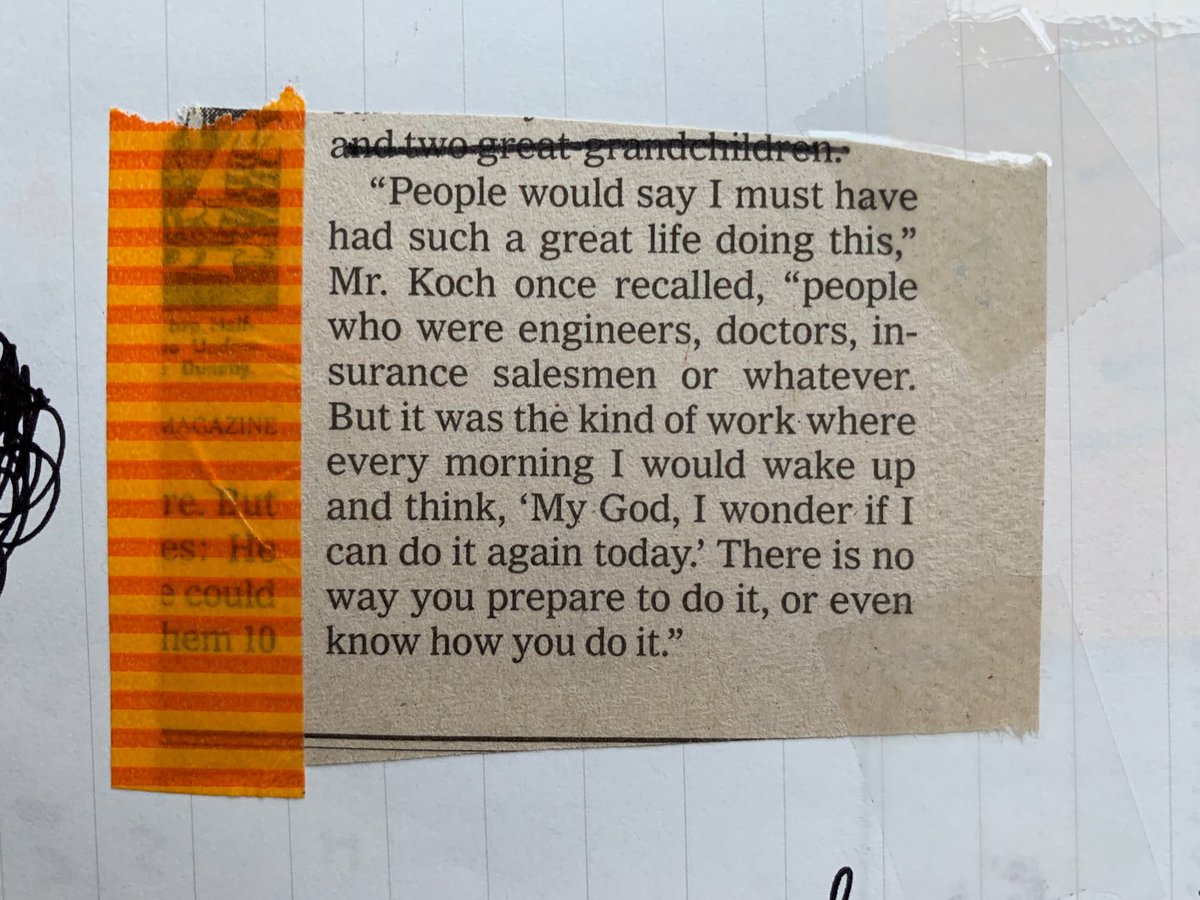 and two great-grandchildren.
“People would say I must have
had such a great life doing this,”
Mr. Koch once recalled, “people
who were engineers, doctors, in-
surance salesmen or whatever.
But it was the kind of work where
every morning I would wake up
and think, ‘My God, I wonder if I
can do it again today.’ There is no
way you prepare to do it, or even
know how you do it.”
MAGAZINE
re. But
es: He
e could
hem 10